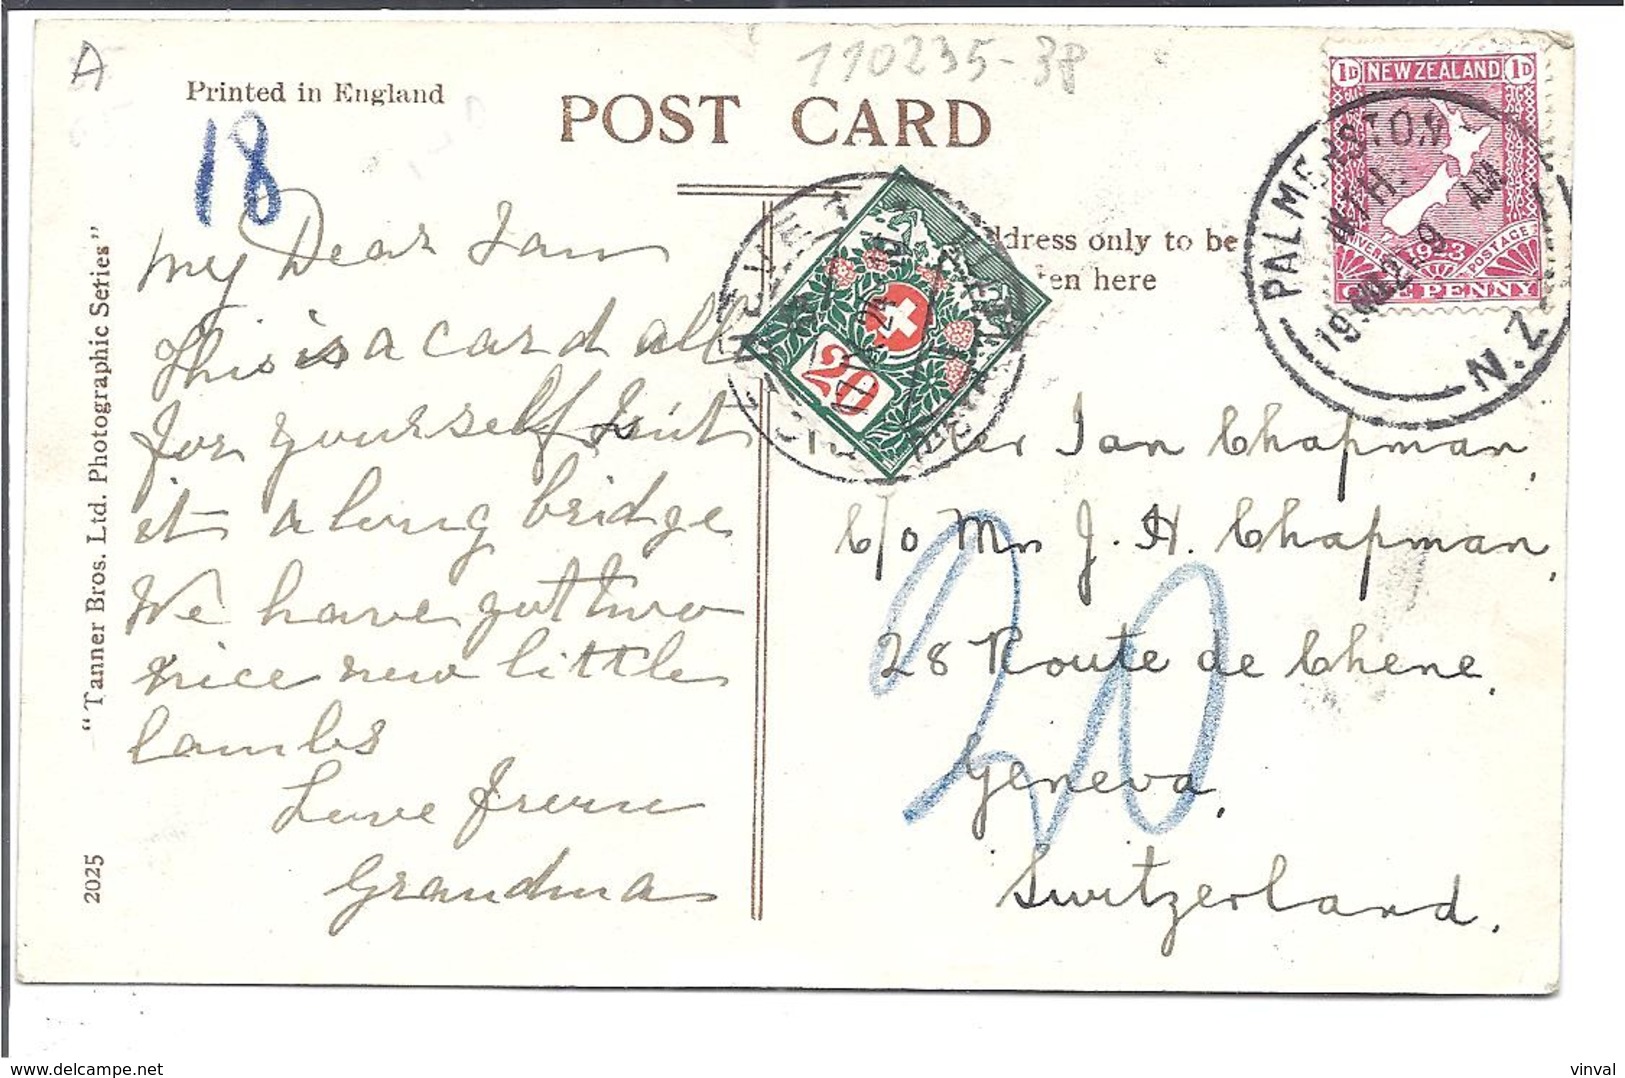 A
110235-38
Printed in England
POST CARD
18
My Dear Ian
This is a card all
for yourself Isn't
it a long bridge
We have got two
nice new little
lambs
Love from
Grandma
"Tanner Bros. Ltd. Photographic Series"
2025
ddress only to be
en here
20
1D NEW ZEALAND 1D
1923
POSTAGE
ONE PENNY
PALMERSTON
N.Z.
Ian Chapman,
C/o Mr J. H. Chapman,
28 Route de Chene,
Geneva,
Switzerland.
20
vinval